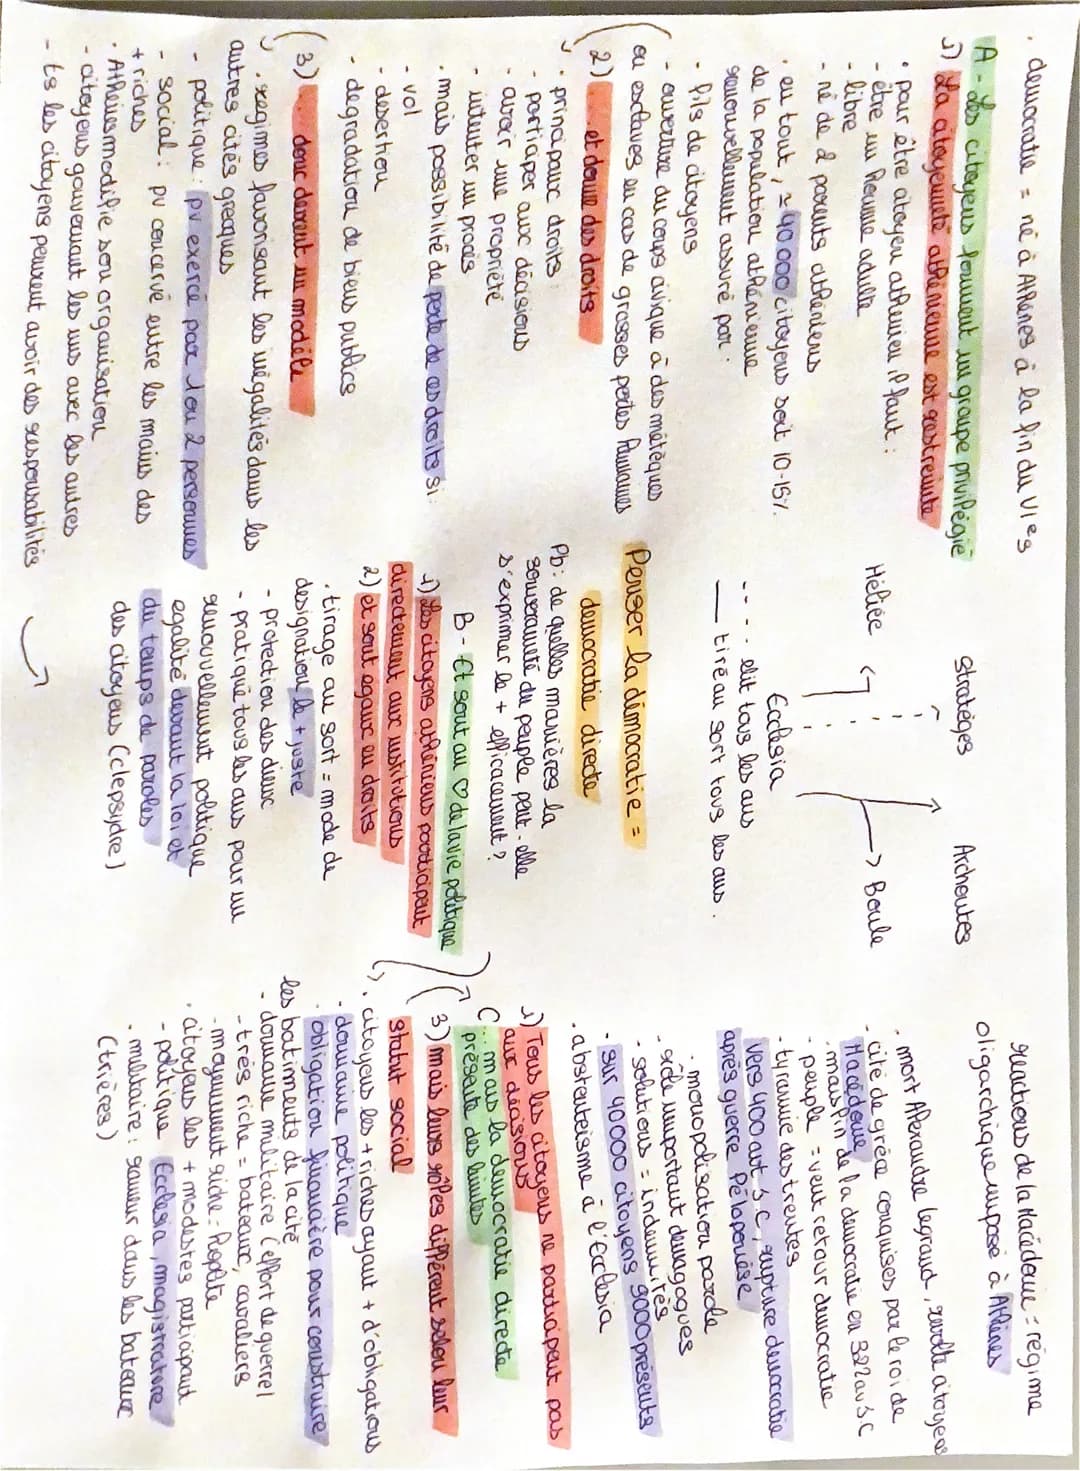 • democratie = né à Athènes à la fin du VIes
A - Les citoyens forment un groupe privilégié
1) La citoyenneté athénienne est restreinte
• pour être citoyen athénien il faut :
- être un homme adulte
- libre
- né de 2 parents athéniens
• en tout, ≃ 40 000 citoyens soit 10-15%
de la population athénienne
renouvellement assuré par :
- fils de citoyens
- ouverture du corps civique à des métèques
ou esclaves en cas de grosses pertes humaines
2) ... et donne des droits
• principaux droits :
- participer aux décisions
- avoir une propriété
- intenter un procès
• mais possibilité de perte de ces droits si :
- vol
- desertion
- degradation de biens publics
3) ... donc devient un modèle
• regimes favorisant les inégalités dans les
autres cités grecques
- politique : pv exercé par 1 ou 2 personnes
- social : pv concervé entre les mains des
+ riches
• Athènes modifie son organisation
- citoyens gouvernant les uns avec les autres
- ts les citoyens peuvent avoir des responsabilités
Stratèges
Archontes
Héliée
Boule
Ecclesia
---- elit tous les ans
___ tiré au sort tous les ans.
Penser la démocratie =
democratie directe
Pb : de quelles manières la
souveraineté du peuple peut-elle
s'exprimer le + efficacement ?
B - Et sont au ♡ de la vie politique
1) Les citoyens athéniens participent
directement aux institutions
2) et sont egaux en droits
• tirage au sort = mode de
designation le + juste
- protection des dieux
- pratiqué tous les ans pour un
renouvellement politique
egalité devant la loi et
du temps de paroles
des citoyens (clepsydre)
3) mais leurs rôles diffèrent selon leur
statut social
• citoyens les + riches ayant + d'obligations
- domaine politique
obligation financière pour construire
les batiments de la cité
- domaine militaire (effort de guerre)
- très riche = bateaux, cavaliers
- moyennement riche = hoplite
• citoyens les + modestes participant
- politique Ecclesia, magistrature
• militaire : rameur dans les bateaux
(trières)
C ... mais la democratie directe
présente des limites
1) Tous les citoyens ne participent pas
aux décisions
• abstenteisme à l'Ecclesia
- sur 40000 citoyens 9000 présents
- solutions = indemnités
- rôle important demagogues
• monopolisation parole
après guerre Péloponèse
vers 400 avt J.C, rupture democratie
- tyrannie des trentes
• peuple = veut retour democratie
• mais fin de la democratie en 322 av J.C
Macédoine
- cité de grèce conquises par le roi de
• mort Alexandre legrand, revolte citoyens
oligarchique imposé à Athènes
reactions de la Macédoine = régime